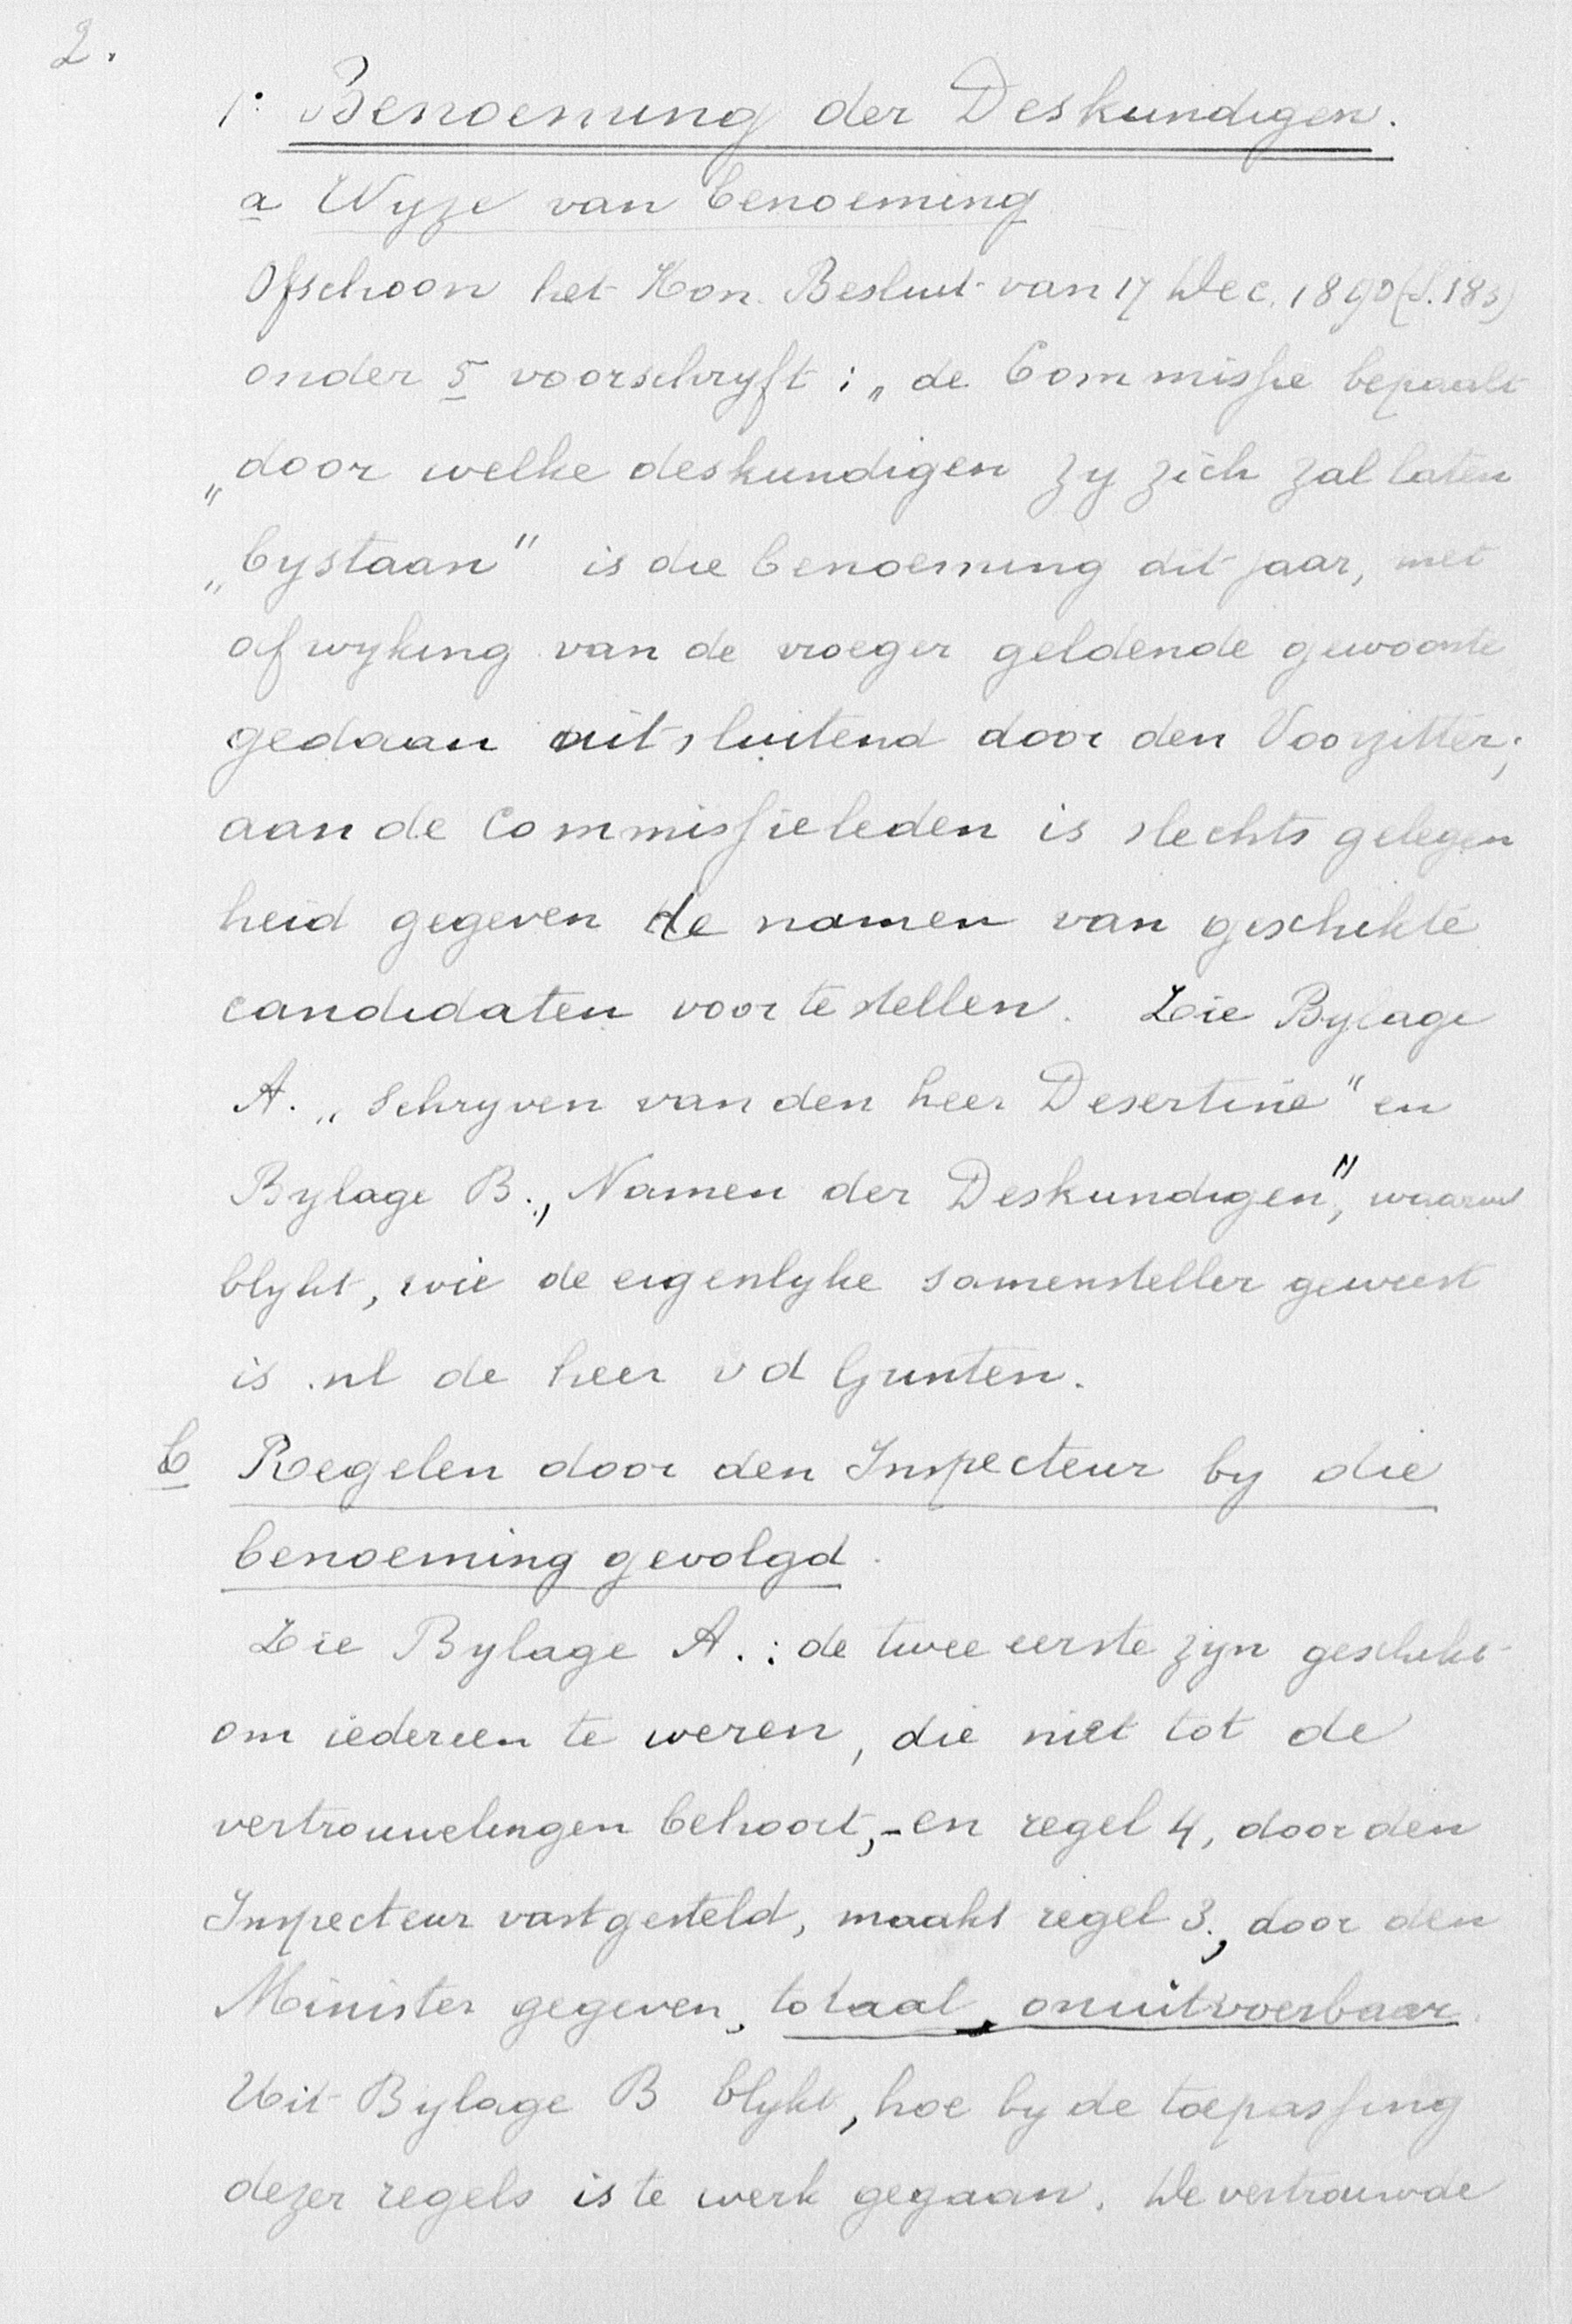 2.
1: Benoeming der Deskundigen.
a Wyze van benoeming
Ofschoon het Kon. Besluit van 17 Dec. 1890 (S. 183)
onder 5 voorschryft: „de Commissie bepaalt
„door welke deskundigen zy zich zal laten
„bystaan" is die benoeming dit jaar, met
afwyking van de vroeger geldende gewoonte
gedaan uitsluitend door den Voorzitter;
aan de Commissieleden is slechts gelegen
heid gegeven de namen van geschikte
candidaten voor te stellen. Zie Bylage
A. „Schryven van den heer Desertine" en
Bylage B., „Namen der Deskundigen", waaruit
blykt, wie de eigenlyke samensteller geweest
is .nl de heer v d Gunten.
b Regelen door den Inspecteur by die
benoeming gevolgd.
Zie Bylage A.: de twee eerste zyn geschikt
om iedereen te weren, die niet tot de
vertrouwelingen behoort,- en regel 4, door den
Inspecteur vastgesteld, maakt regel 3., door den
Minister gegeven, totaal onuitvoerbaar.
Uit Bylage B blykt, hoe by de toepassing
dezer regels is te werk gegaan. De vertrouwde